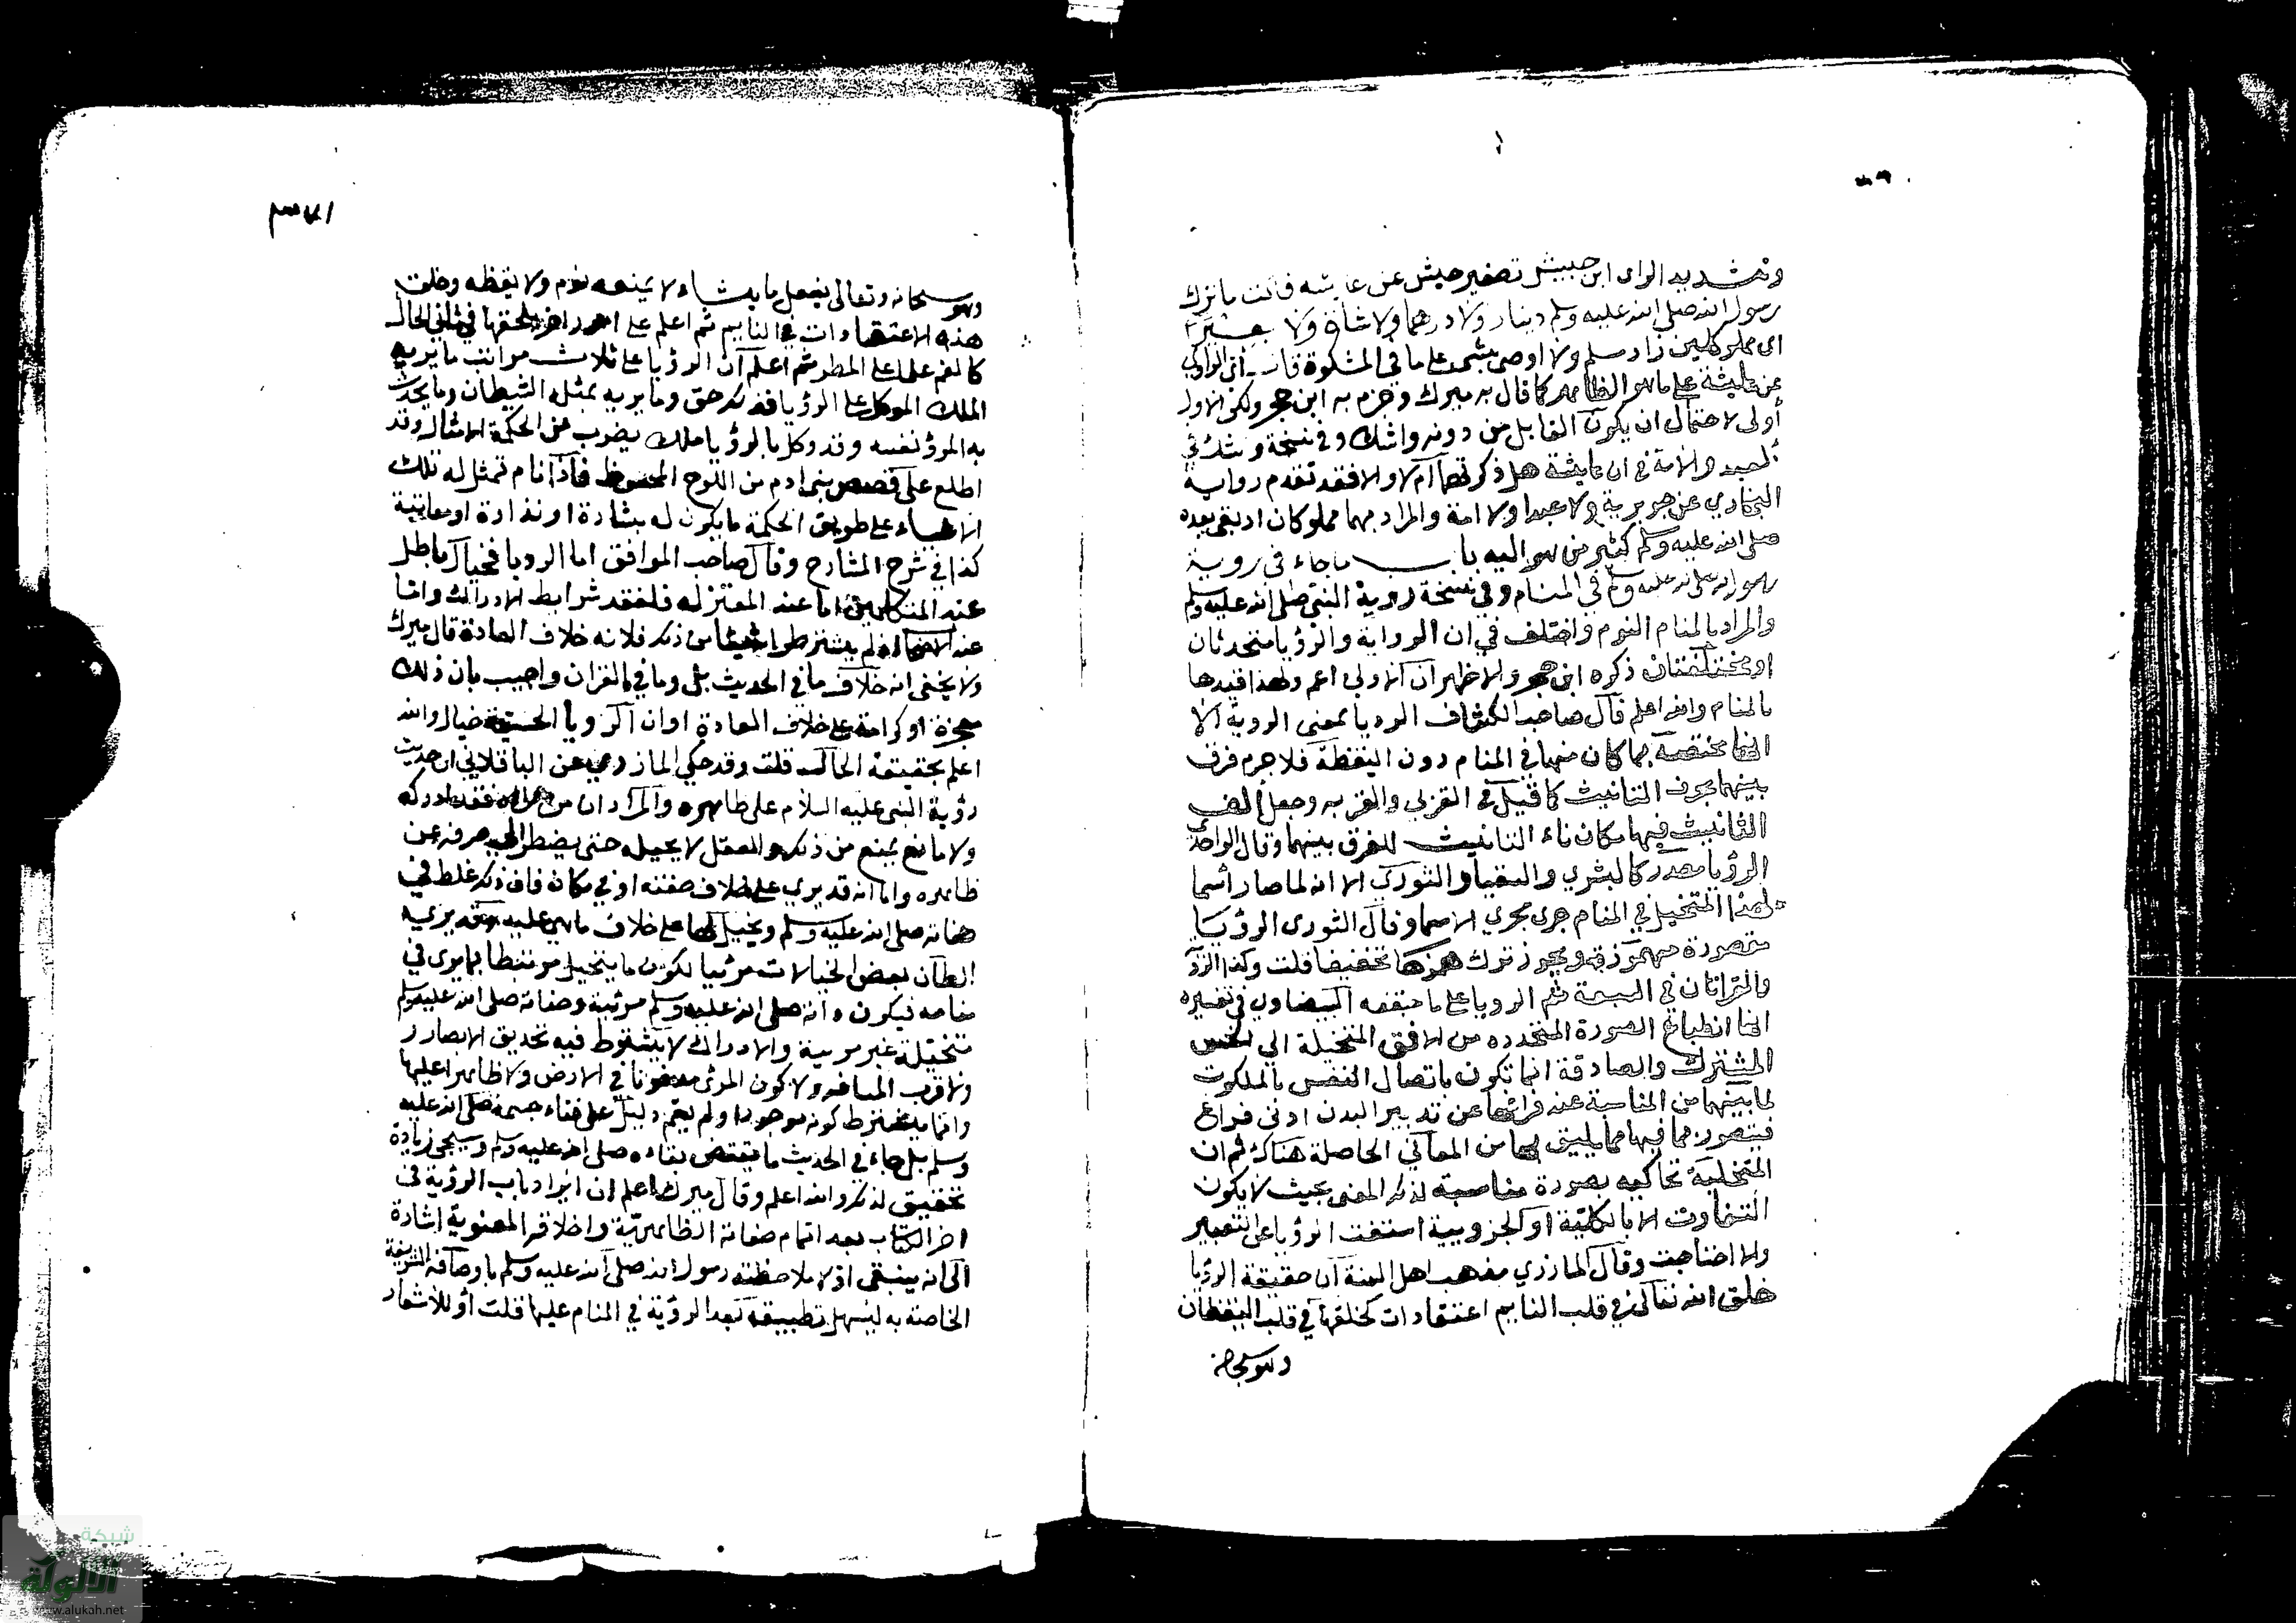 وتشديد الراى ابن حبيش تصغير حبش عن عايشه قالت ما ترك
رسول الله صلى الله عليه وسلم دينارا ولا درهما ولا شاة ولا بعيرا
اى مملوكين زاد مسلم ولا اوصى بشئ على ما في المشكوة قال اى الراوي
عن عايشة على ما هو الظاهر كما قال به ميرك وجزم به ابن حجر ولكن الاول
أولى لاحتمال ان يكون القايل من دونه واشك وفي نسخة وشك في
العبد والامة في ان عايشة هل ذكرتهما أم لا والا فقد تقدم رواية
البخاري عن جويرية ولا عبدا ولا امة والمراد بهما مملوكان اذ بقى بعده
صلى الله عليه وسلم كثير من مواليه باب ما جاء في روية
رسول الله صلى الله عليه وسلم في المنام وفي نسخة روية النبي صلى الله عليه وسلم
والمراد بالمنام النوم واختلف في ان الرواية والرؤيا متحدثان
او مختلفتان ذكره ابن حجر والاظهر ان الاولى اعم ولهذا قيدها
بالمنام والله اعلم قال صاحب الكشاف الرويا بمعنى الروية الا
انها مختصة بما كان منها في المنام دون اليقظة فلا جرم فرق
بينهما بحرف التانيث كما قيل في القربى والقربه وجعل الف
التانيث فيها مكان تاء التانيث للفرق بينهما وقال الواحدي
الرؤيا مصدر كالبشرى والسقيا والشورى الا انه لما صار اسما
لهذا المتخيل في المنام جرى مجرى الاسما وقال الثورى الرؤيا
مقصورة مهموزة ويجوز ترك همزها تخفيفا قلت وكذا الرؤ
والقراتان في السبعة ثم الرويا على ما حققه البيضاوى في تفسيره
انها انطباع الصورة المنحدره من الافق المتخيلة الى الحس
المشترك والصادقة انما تكون باتصال النفس بالملكوت
لما بينهما من المناسبة عند فراغها عن تدبير البدن ادنى فراغ
فتتصور بما فيها مما يليق بها من المعاني الحاصلة هناك ثم ان
المتخلية تحاكيه بصورة مناسبة لذلك المعنى بحيث لا يكون
التفاوت الا بالكلية او الجزوبية استغنت الرؤيا عن التعبير
والا احتاجت وقال المازرى مذهب اهل السنة أن حقيقة الرؤيا
خلق الله تعالى في قلب النايم اعتقادات كخلقها في قلب اليقظان
وهو سبحانه
٣٧١
وهو سبحانه وتعالى يفعل ما يشاء لا يمنعه نوم ولا يقظه وخلق
هذه الاعتقادات في النايم ثم اعلم على امور اخر يلحقها في ثاني الحال
كالغيم علما على المطر ثم اعلم أن الرؤيا على ثلاث مراتب ما يريه
الملك الموكل على الرؤيا فذلك حق وما يريه يمثله الشيطان وما يحدث
به المرؤ نفسه وقد وكل بالرؤيا ملك يضرب من الحكمة الامثال وقد
اطلع على قصص بني ادم من اللوح المحفوظ فاذا نام تمثل له تلك
الاشياء على طريق الحكمة ما يكون له بشارة او نذارة او معاتبة
كذا في شرح المشارح وقال صاحب المواقف اما الرويا فخيال باطل
عند المتكلمين اما عند المعتزله فلفقد شرايط الادراك واما
عند الاصحاب اذ لم يشترطوا شيئا من ذلك فلانه خلاف العادة قال ميرك
ولا يخفى انه خلاف ما في الحديث بل وما في القران واجيب بان ذلك
معجزة او كرامة على خلاف العادة او ان الرويا الحسية خيال والله
اعلم بحقيقة الحال قلت وقد حكى المازرى عن الباقلاني ان حديث
رؤية النبى عليه السلام على ظاهره والمراد ان من راه فقد ادركه
ولا مانع يمنع من ذلك والعقل لا يحيله حتى يضطر الى صرفه عن
ظاهره واما انه قد يرى على خلاف صفته او في مكان فان ذلك غلط في
صفاته صلى الله عليه وسلم وتخيل لها على خلاف ما هى عليه وقد يرى
الظان بعض الخيالات مرئيا لكون ما يتخيل مرتبطا بما يرى في
منامه فيكون ذاته صلى الله عليه وسلم مرئية وصفاته صلى الله عليه وسلم
متخيلة غير مريية والادراك لا يشترط فيه تحديق الابصار
ولا قرب المسافه ولا كون المرئى مدفونا في الارض ولا ظاهرا عليها
وانما يشترط كونه موجودا ولم يقم دليل على فناء جسمه صلى الله عليه
وسلم بل جاء في الحديث ما يقتضى بقاءه صلى الله عليه وسلم وسيجى زيادة
تحقيق لذلك والله اعلم وقال ميرك اعلم ان ايراد باب الرؤية في
اخر الكتاب بعد اتمام صفاته الظاهرية واخلاقه المعنوية اشارة
الى انه ينبغى اولا ملاحظة رسول الله صلى الله عليه وسلم باوصافه الشريفة
الخاصة به ليسهل تطبيقه بعد الرؤية في المنام عليها قلت أو للاشعار
شبكة
الألوكة
www.alukah.net